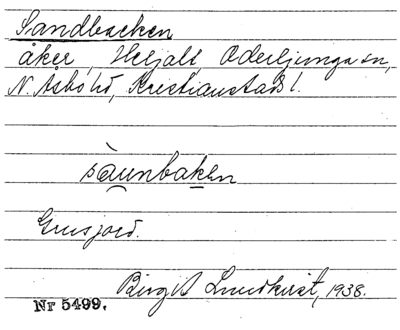 Sandbacken
åker, Heljalt Oderljunga sn,
N. Åsbo hd, Kristianstads l.
sàunbaken
Grusjord.
Birgit Lundkvist, 1938.
Nr 5499.